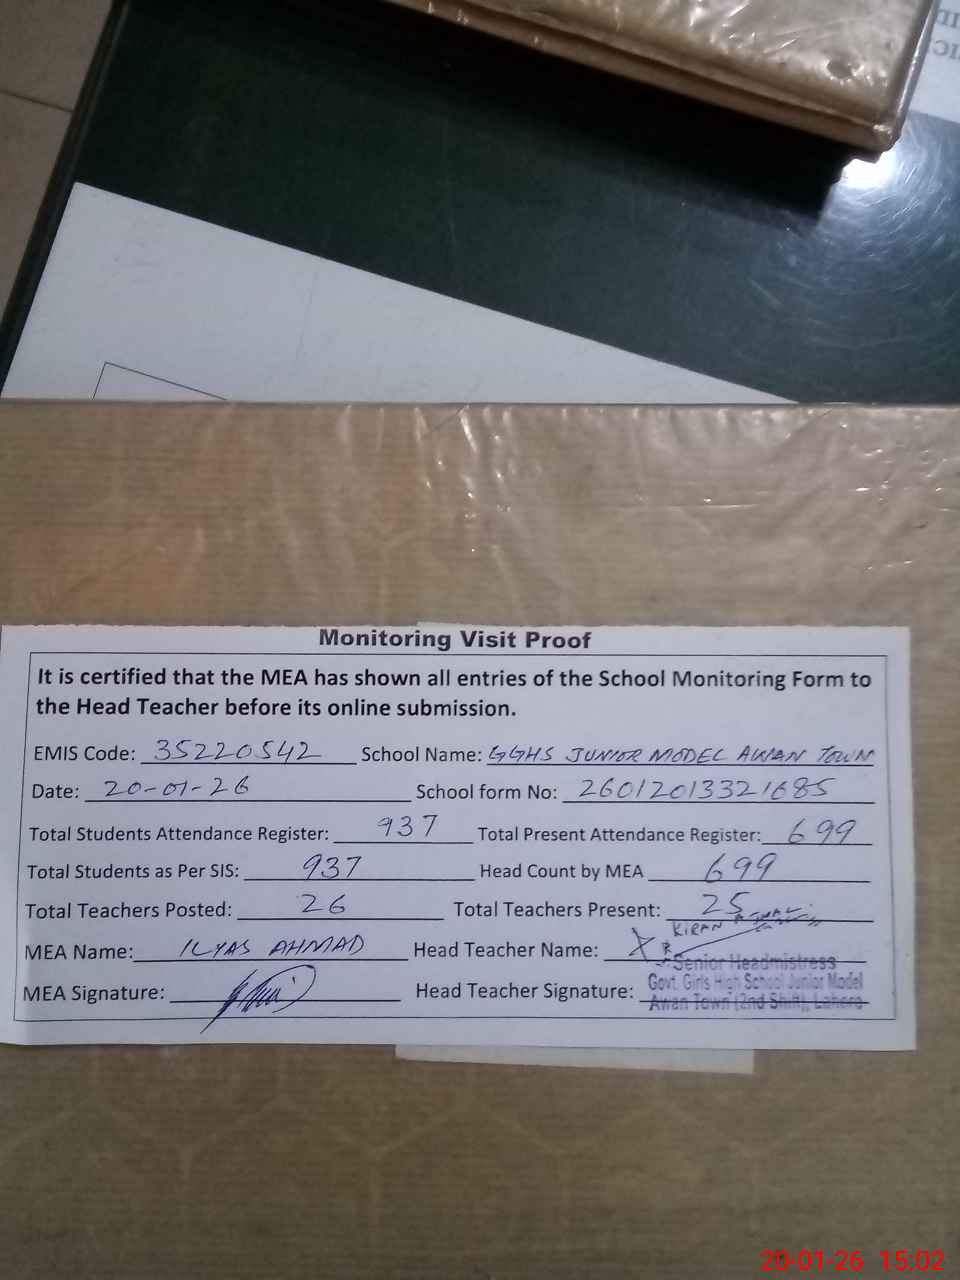 Monitoring Visit Proof
It is certified that the MEA has shown all entries of the School Monitoring Form to
the Head Teacher before its online submission.
EMIS Code: 35220542 School Name: GGHS JUNIOR MODEL AWAN TOWN
Date: 20-01-26 School form No: 26012013321685
Total Students Attendance Register: 937 Total Present Attendance Register: 699
Total Students as Per SIS: 937 Head Count by MEA 699
Total Teachers Posted: 26 Total Teachers Present: 25
MEA Name: ILYAS AHMAD Head Teacher Name: KIRAN
Senior Headmistress
MEA Signature: Head Teacher Signature: Govt. Girls High School Junior Model
Awan Town (2nd Shift), Lahore
20-01-26 15:02